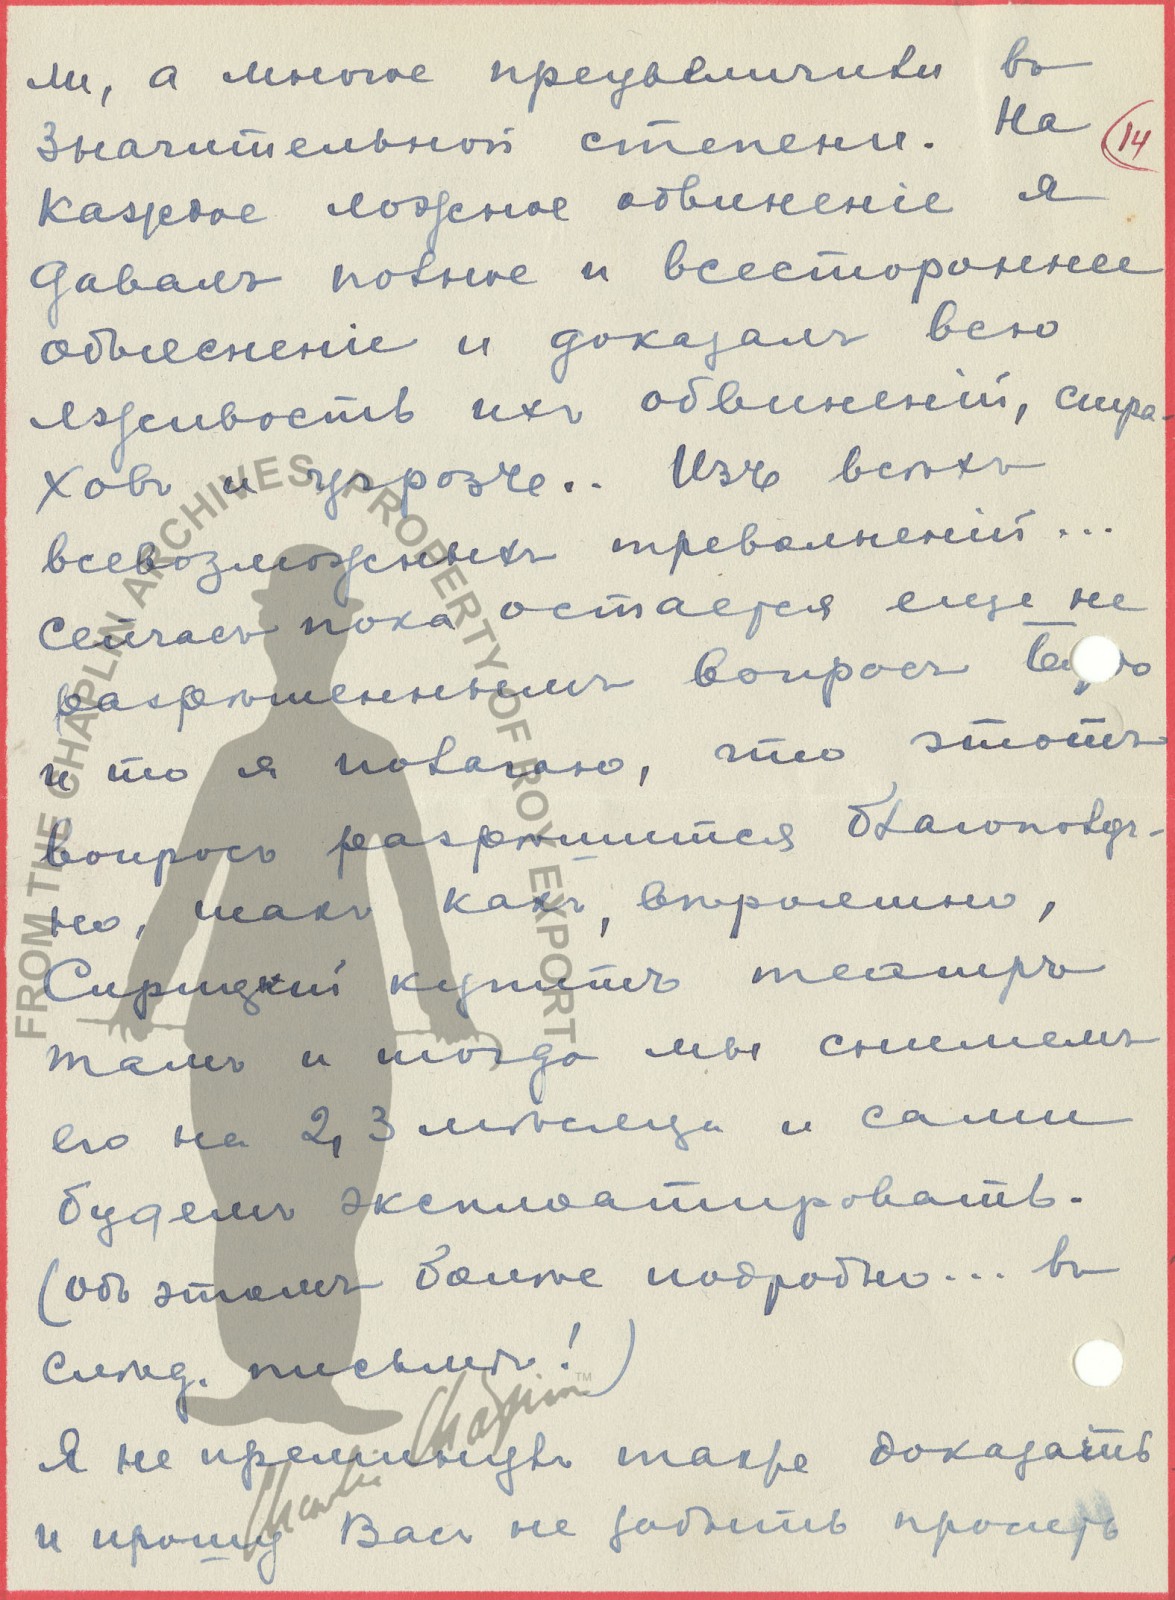 ли, а многое преувеличили въ
значительной степени. На
14
каждое ложное обвиненіе я
давалъ полное и всестороннее
объясненіе и доказалъ всю
лживость ихъ обвиненій, стра-
ховъ и угрозъ.. Изъ всѣхъ
всевозможныхъ треволненій...
сейчасъ пока остается еще не
разрѣшеннымъ вопросъ
и то я полагаю, что этотъ
вопросъ разрѣшится благополуч-
но, такъ какъ, вѣроятно,
Сирицкій купитъ театръ
тамъ и тогда мы снимемъ
его на 2, 3 мѣсяца и сами
будемъ эксплоатировать.
(объ этомъ болѣе подробно... въ
слѣд. письмѣ!)
Я не преминулъ также доказать
и прошу Васъ не забыть
FROM THE CHAPLIN ARCHIVES PROPERTY OF ROY EXPORT
Charlie Chaplin TM